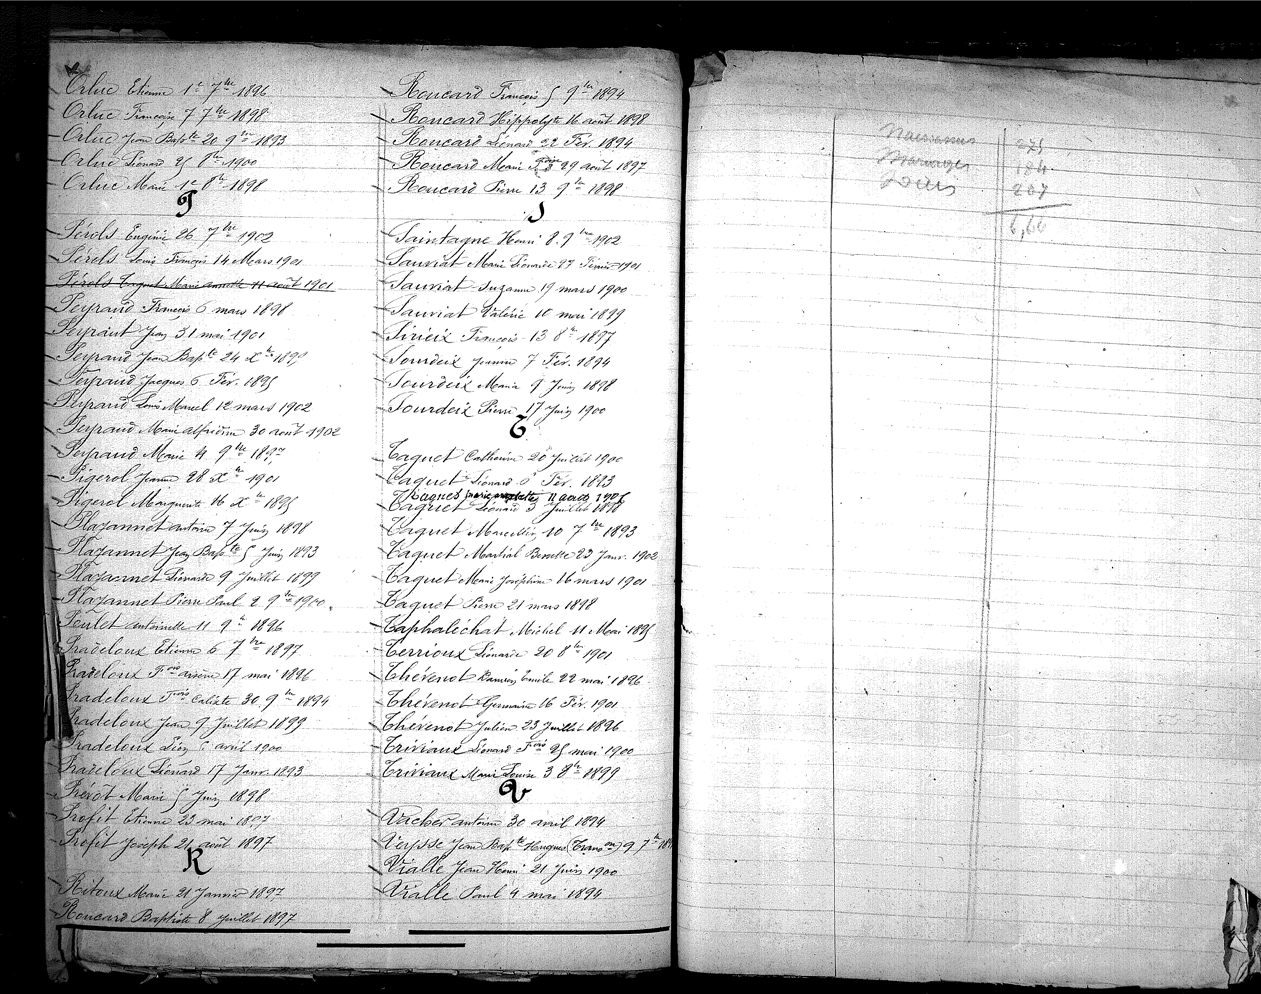 Orluc Etienne 1e 7bre 1896
Orluc François 7 7bre 1898
Orluc Jean Bapte 20 9bre 1893
Orluc Léonard 25 8bre 1900
Orluc Marie 1e 8bre 1898
P
Pérols Eugénie 26 7bre 1902
Pérols Louis François 14 Mars 1901
Pérols Taguet Marie annette 11 août 1901
Peyraud François 6 mars 1898
Peyraud Jean 31 mai 1901
Peyraud Jean Bapte 24 Xbre
Peyraud Jacques 6 Fév. 1895
Peyraud Louis Marcel 12 mars 1902
Peyraud Marie 30 août 1902
Peyraud Marie 4 9bre 1897
Pigerol Jeanne 28 Xbre 1901
Pigerol Marguerite 16 Xbre 1895
Plazannet antoine 7 Juin 1898
Plazannet Jean Bapte 5 Juin 1893
Plazannet Léonarde 9 Juillet 1899
Plazannet Pierre Paul 2 9bre 1900
Poulet antoinette 11 9bre 1896
Pradeloux Etienne 6 7bre 1897
Pradeloux Fois arsène 17 mai 1896
Pradeloux Fois Calixte 30 9bre 1894
Pradeloux Jean 9 Juillet 1899
Pradeloux Léon avril 1900
Pradeloux Léonard 17 Janv. 1893
Prévot Marie 5 Juin 1898
Profit Etienne 23 mai 1897
Profit Joseph 21 août 1897
R
Ritoux Marie 21 Janvier 1897
Roncard Baptiste 8 Juillet 1897
Roncard François 5 9bre 1894
Roncard Hippolyte 16 août 1898
Roncard Léonard 22 Fév. 1894
Roncard Marie Foise 29 août 1897
Roncard Pierre 13 9bre 1898
S
Saintagne Henri 8. 9bre 1902
Sauviat Marie Léonarde 27 Février 1901
Sauviat Suzanne 19 mars 1900
Sauviat Valérie 10 mai 1899
Sirieix François 13 8bre 1897
Sourdeix Jeanne 7 Fév. 1894
Sourdeix Marie 9 Juin 1898
Sourdeix Pierre 17 Juin 1900
T
Taguet Catherine 20 Juillet 1900
Taguet Léonard 6 Fév. 1893
Taguet Léonard 3 Juillet 1898
Taguet Marcellin 10 7bre 1893
Taguet Martial 23 Janv. 1902
Taguet Marie Joséphine 16 mars 1901
Taguet Pierre 21 mars 1898
Taphaléchat Michel 11 Mai 1895
Terrioux Léonarde 20 8bre 1901
Thévenot Emile 22 mai 1896
Thévenot Germaine 16 Fév. 1901
Thévenot Julien 23 Juillet 1896
Triviaux Léonard Fois 25 mai 1900
Triviaux Marie Louise 3 8bre 1899
V
Vacher antoine 30 avril 1894
Veysse Jean Bapte Hugues 9 7bre
Vialle Jean Henri 21 Juin 1900
Vialle Paul 4 mai 1894
Naissances 275
Mariages 184
Décès 207
6,66